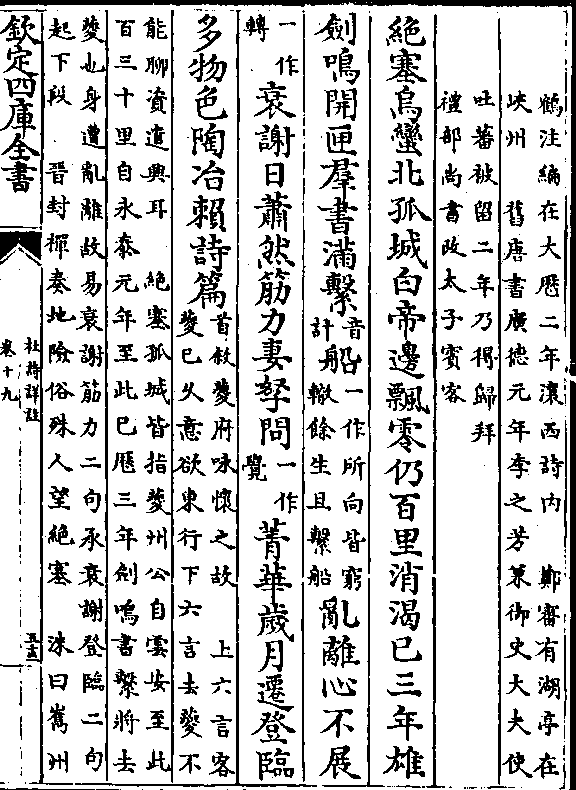 鶴注編在大厯二年瀼西詩内　鄭審有湖亭在
峽州　舊唐書廣德元年李之芳兼御史大夫使
吐蕃被留二年乃得歸拜
禮部尚書改太子賓客
絶塞烏蠻北孤城白帝邊飄零仍百里消渴已三年雄
劍鳴開匣羣書滿繫音計船一作所向皆窮轍餘生且繫船亂離心不展
一作轉衰謝日蕭然筋力妻孥問一作覺菁華歲月遷登臨
多物色陶冶頼詩篇首敘夔府咏懷之故　上六言客夔已久意欲東行下六言去夔不
能聊資遣興耳　絶塞孤城皆指夔州公自雲安至此
百三十里自永泰元年至此已厯三年劍鳴書繫將去
夔也身遭亂離故易衰謝筋力二句承衰謝登臨二句
起下段　晋封禪奏地險俗殊人望絶塞　洙曰嶲州
欽定四庫全書
杜詩詳註
卷十九
五十三